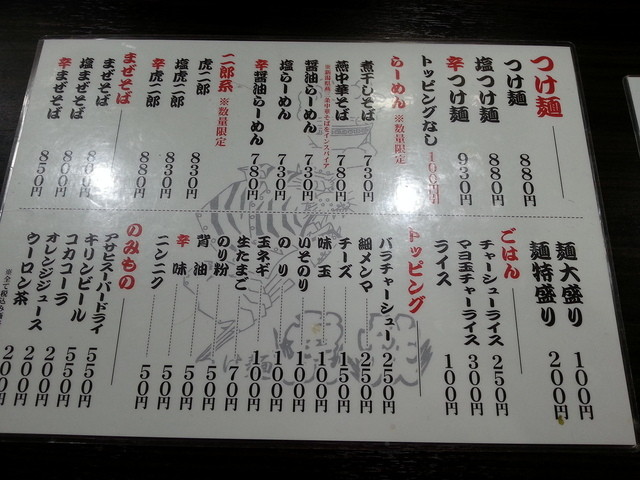 つけ麺
つけ麺 880円
塩つけ麺 880円
辛つけ麺 930円
トッピングなし 100円引
らーめん ※数量限定
煮干しそば 730円
燕中華そば 780円
醤油らーめん 730円
塩らーめん 730円
辛醤油らーめん 780円
二郎系 ※数量限定
虎二郎 830円
塩虎二郎 830円
辛虎二郎 880円
まぜそば
まぜそば
塩まぜそば 800円
辛まぜそば 850円
麺大盛り 100円
麺特盛り 200円
ごはん
チャーシューライス 250円
マヨ玉チャーライス 300円
ライス 100円
トッピング
バラチャーシュー 250円
細メンマ 250円
チーズ 150円
味玉 100円
いそのり 100円
のり 100円
玉ネギ 100円
生たまご 70円
のり粉 50円
背油 50円
辛味 50円
ニンニク 50円
のみもの
アサヒスーパードライ 550円
キリンビール 550円
コカコーラ 200円
オレンジジュース 200円
ウーロン茶 200円